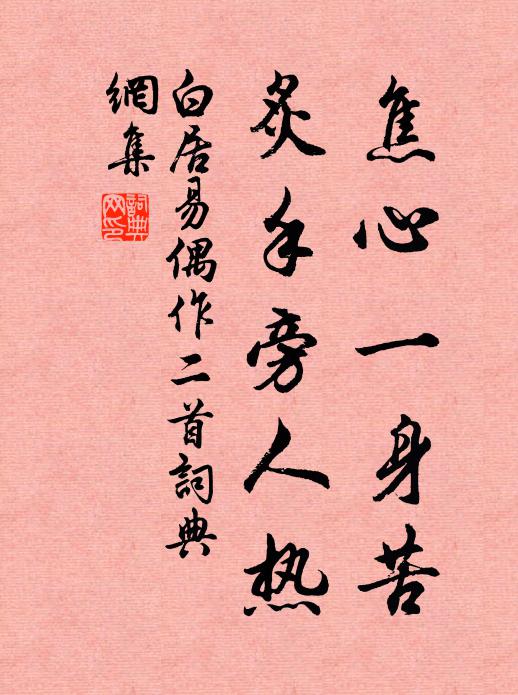 焦心一身苦
炙手旁人热
白居易偶作二首詞典
網集
詞典
网印